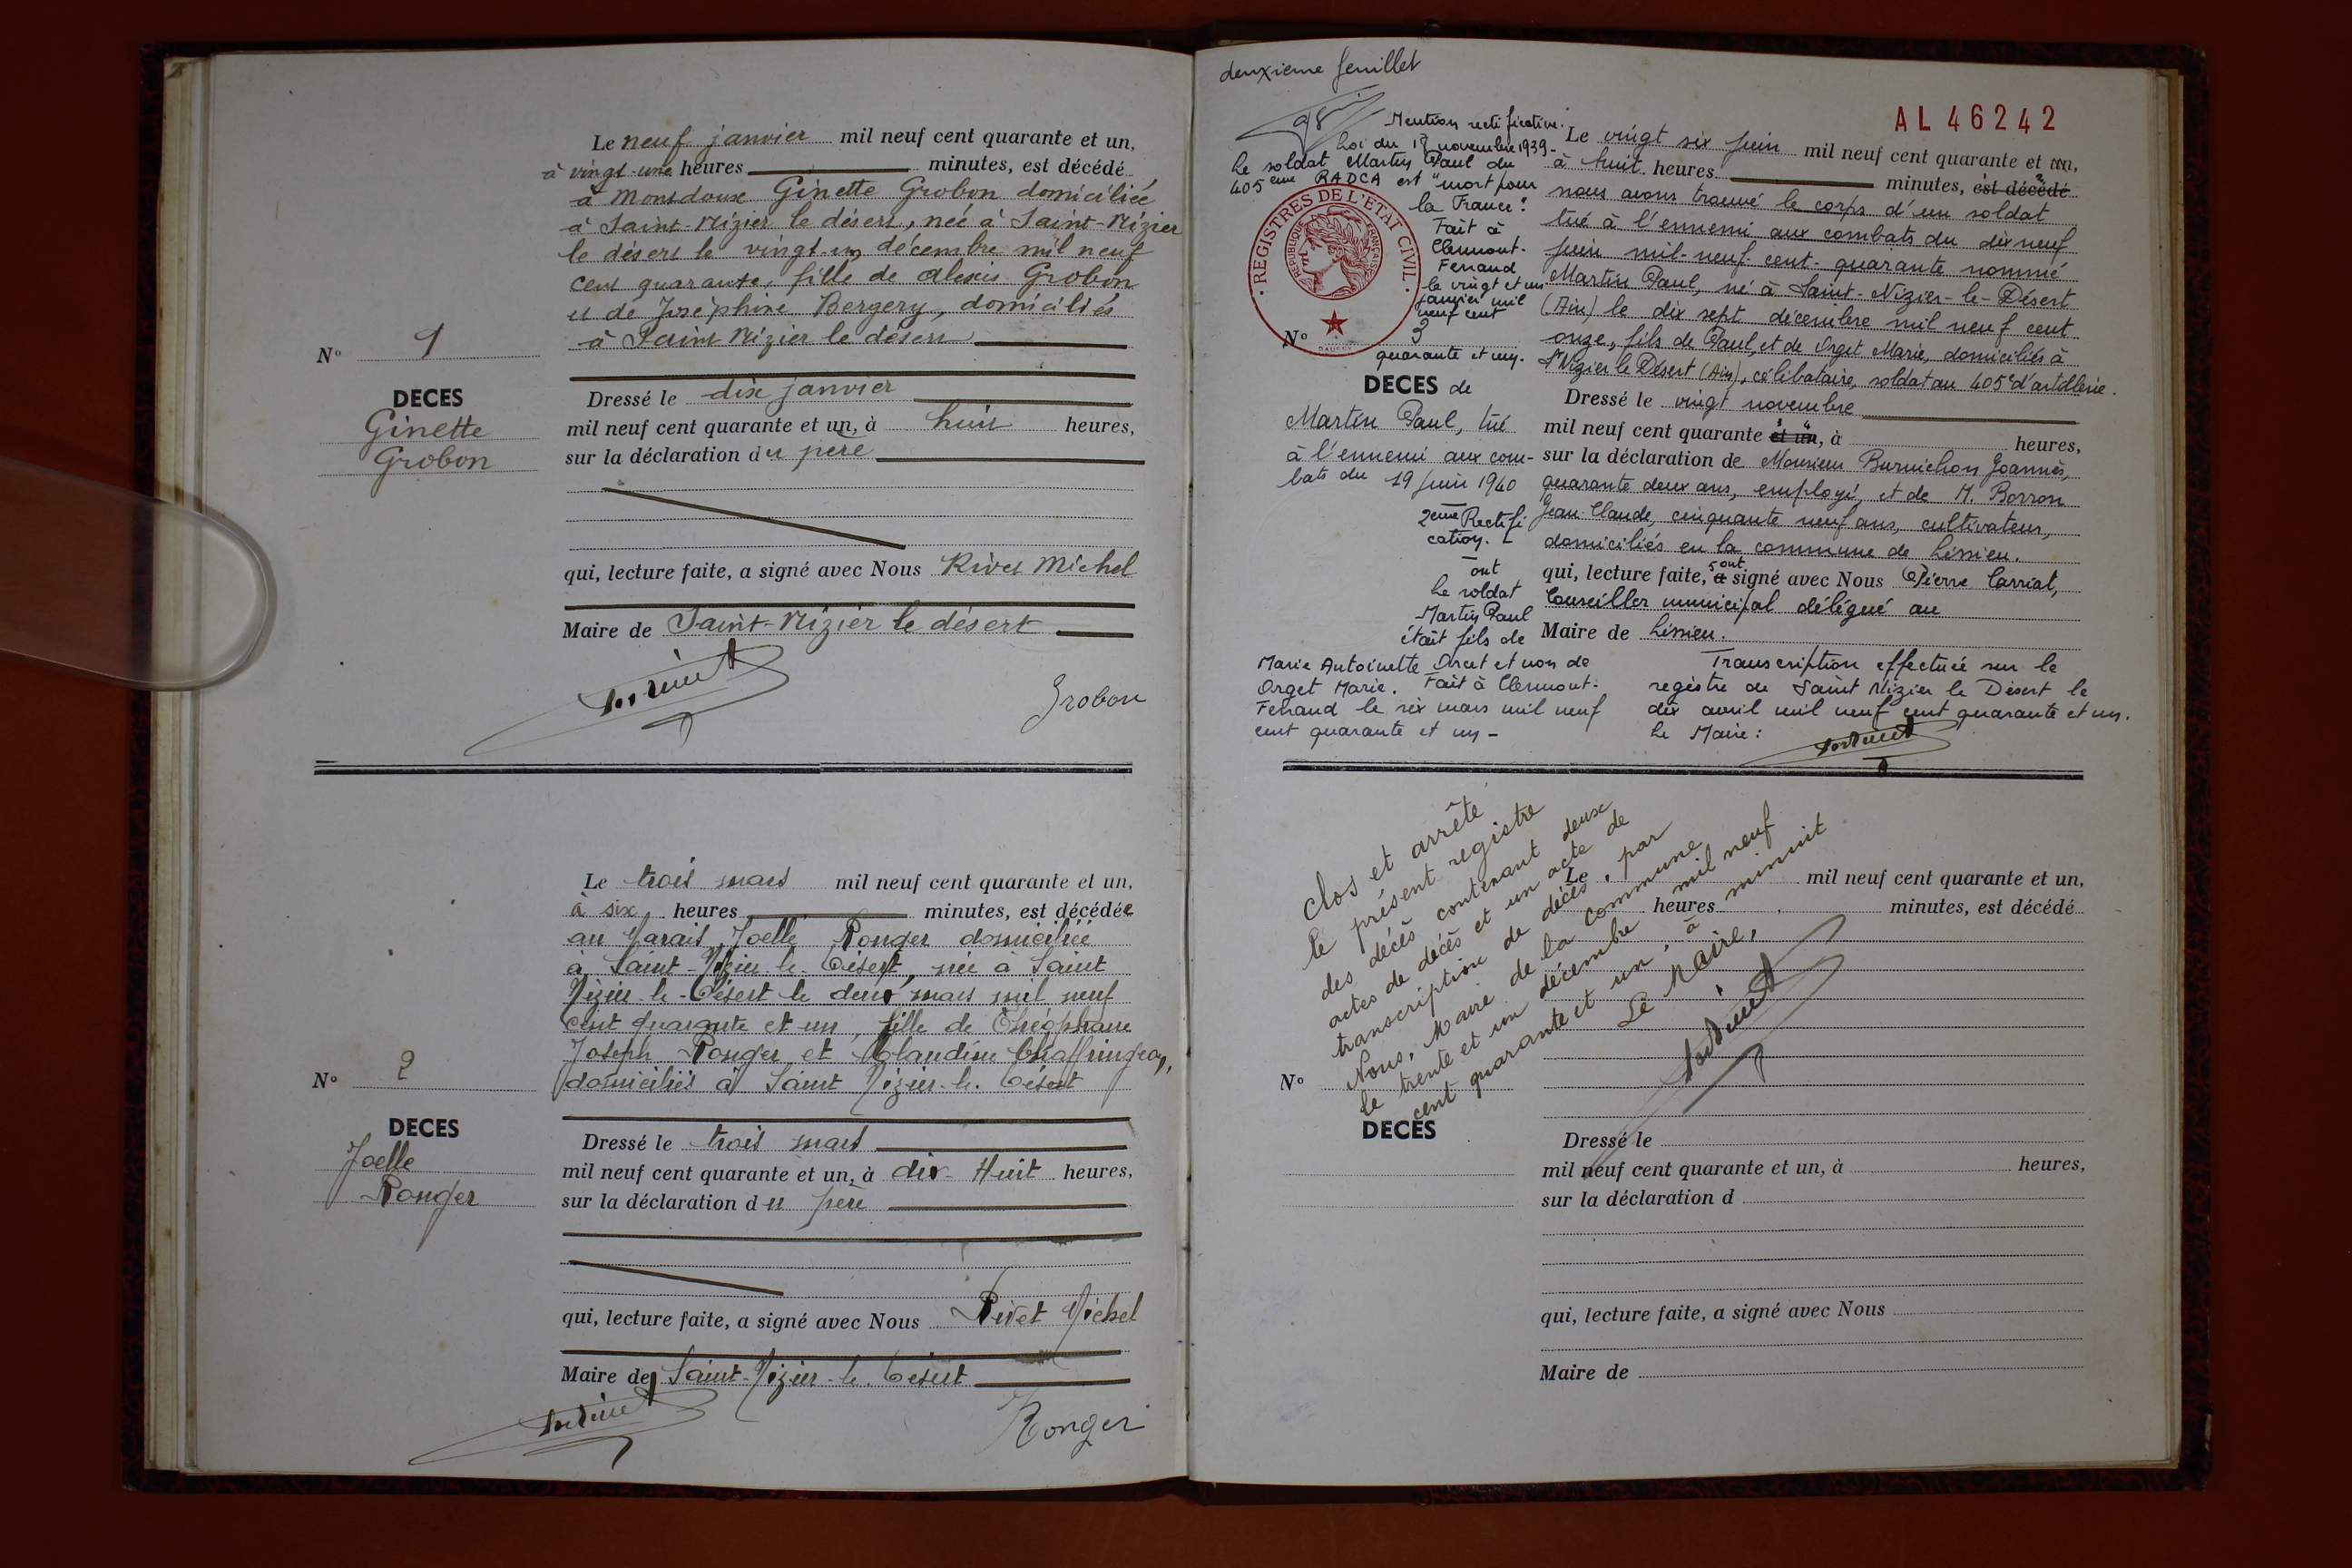 Le neuf janvier mil neuf cent quarante et un,
à vingt-une heures minutes, est décédé
à Montdoux Ginette Grobon domiciliée
à Saint-Nizier le désert, née à Saint-Nizier
le désert le vingt-un décembre mil neuf
cent quarante, fille de Alexis Grobon
et de Joséphine Bergery, domiciliés
à Saint Nizier le désert
N° 1
DECES
Ginette
Grobon
Dressé le dix janvier
mil neuf cent quarante et un, à huit heures,
sur la déclaration du père
qui, lecture faite, a signé avec Nous Rivet Michel
Maire de Saint-Nizier le désert
Grobon
Le trois mars mil neuf cent quarante et un,
à six heures minutes, est décédée
au Marais Joelle Ronger domiciliée
à Saint-Nizier-le-Désert, née à Saint
Nizier-le-Désert le deux mars mil neuf
cent quarante et un, fille de Théophane
Joseph Ronger et Blandine Chaffringeon,
domiciliés à Saint Nizier-le-Désert
N° 2
DECES
Joelle
Ronger
Dressé le trois mars
mil neuf cent quarante et un, à dix-Huit heures,
sur la déclaration du père
qui, lecture faite, a signé avec Nous Rivet Michel
Maire de Saint-Nizier-le-Désert
Ronger
deuxième feuillet
AL 46242
Mention rectificative.
Loi du 17 novembre 1939-
Le soldat Martin Paul du
405eme RADCA est "mort pour
la France".
Fait à
Clermont-
Ferrand
le vingt et un
janvier mil
neuf cent
quarante et un.
REGISTRES DE L'ETAT CIVIL
REPUBLIQUE FRANÇAISE
N° 3
DECES de
Martin Paul, tué
à l'ennemi aux com-
bats du 19 juin 1940
2eme Rectifi
cation.
Le soldat
Martin Paul
était fils de
Marie Antoinette Orcet et non de
Orget Marie. Fait à Clermont-
Ferrand le six mars mil neuf
cent quarante et un-
Le vingt six juin mil neuf cent quarante et un,
à huit heures minutes, est décédé
nous avons trouvé le corps d'un soldat
tué à l'ennemi aux combats du dix neuf
juin mil-neuf-cent-quarante nommé
Martin Paul, né à Saint-Nizier-le-Désert
(Ain) le dix sept décembre mil neuf cent
onze, fils de Paul, et de Orget Marie, domiciliés à
St Nizier le Désert (Ain), célibataire, soldat au 405e d'artillerie.
Dressé le vingt novembre
mil neuf cent quarante et un, à heures,
sur la déclaration de Monsieur Burnichon Joannès,
quarante deux ans, employé, et de M. Borron
Jean-Claude, cinquante neuf ans, cultivateur,
domiciliés en la commune de Lissieu.
qui, lecture faite, ont signé avec Nous Pierre Carriat,
Conseiller municipal délégué au
Maire de Lissieu.
Transcription effectuée sur le
registre de Saint Nizier le Désert le
dix avril mil neuf cent quarante et un.
Le Maire:
Clos et arrêté
le présent registre
des décès contenant deux
actes de décès et un acte de
transcription de décès, par
Nous, Maire de la commune
le trente et un décembre mil neuf
cent quarante et un, à minuit
Le Maire,
Le mil neuf cent quarante et un,
heures minutes, est décédé
N°
DECES
Dressé le
mil neuf cent quarante et un, à heures,
sur la déclaration d
qui, lecture faite, a signé avec Nous
Maire de